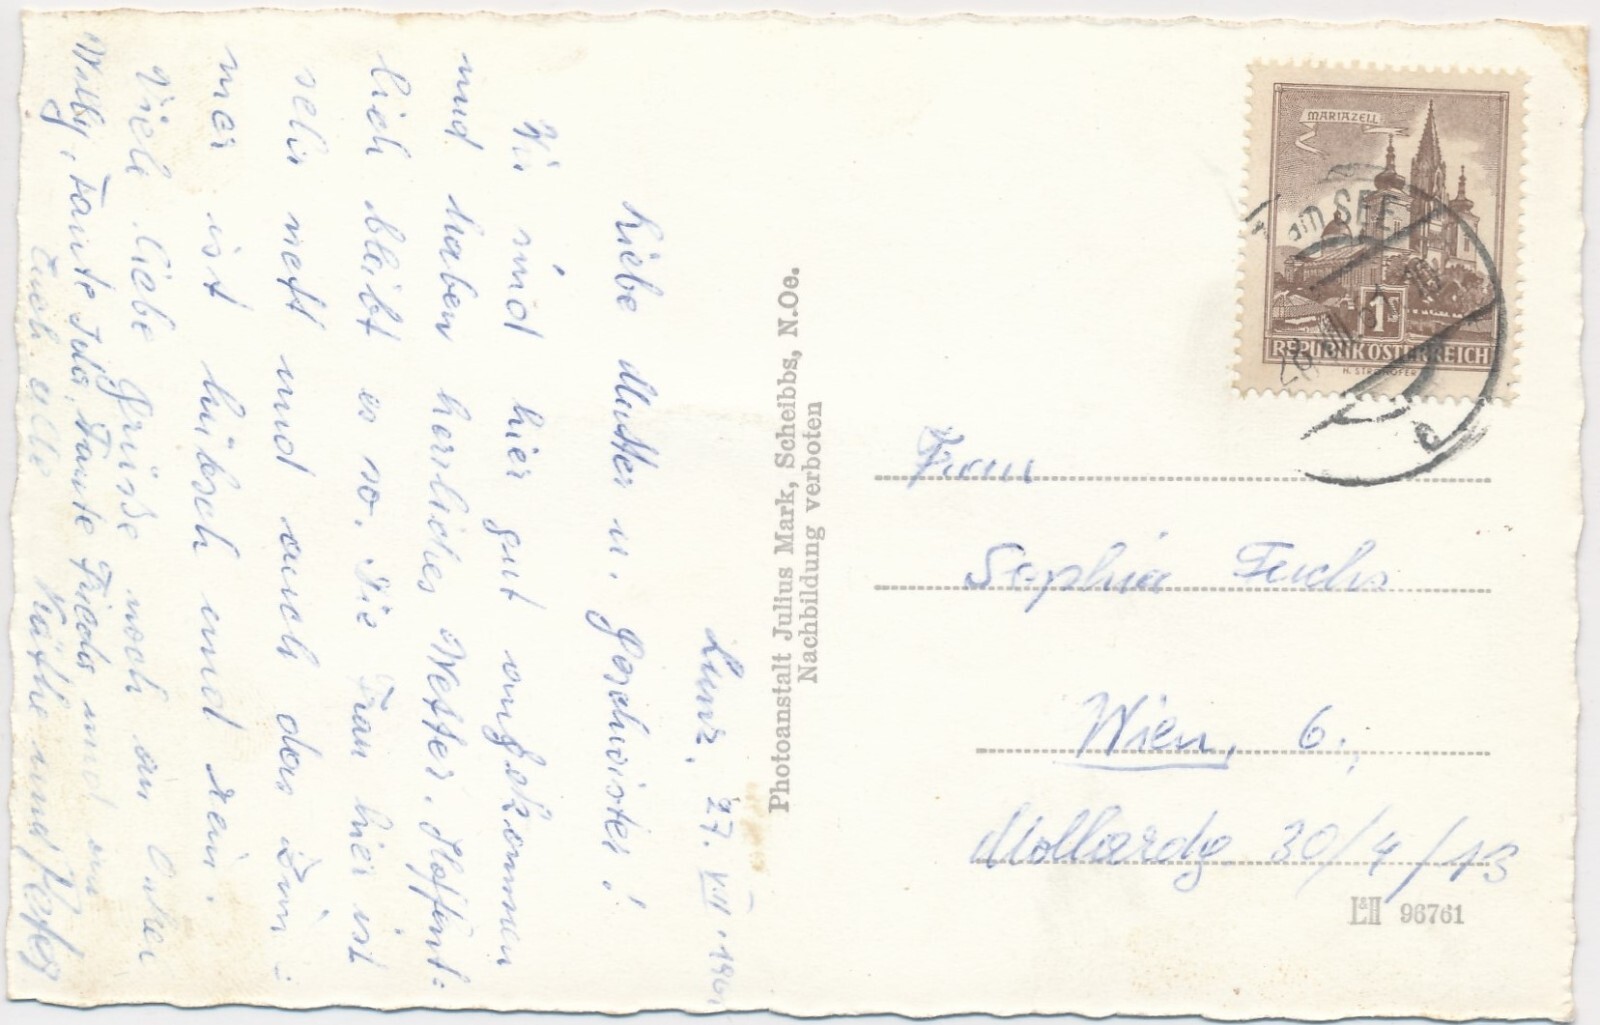 Lunz, 27. VII. 1961
Liebe Mutter u. Geschwister!
Wir sind hier gut angekommen
und haben herrliches Wetter. Hoffent-
lich bleibt es so. Die Frau hier ist
sehr nett und auch das Zim-
mer ist hübsch und rein.
Viele liebe Grüsse noch an Onkel
Willy, Tante Ida, Tante Frieda und an
Euch alle Käthe und
Photoanstalt Julius Mark, Scheibbs, N.Oe.
Nachbildung verboten
MARIAZELL
1S
REPUBLIK ÖSTERREICH
H. STROHOFER
am SEE
28.VII.61-10
c
Frau
Sophia Fuchs
Wien, 6.
Mollardg. 30/4/13
L&H 96761